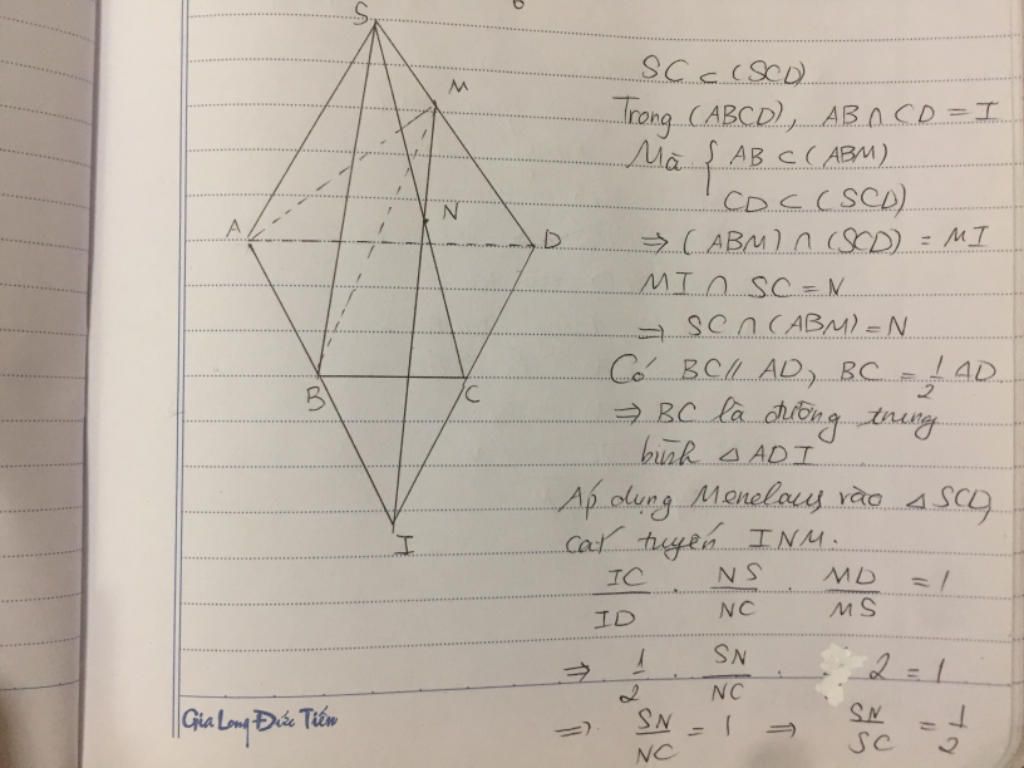 6
S
M
A
N
D
B
C
I
SC ⊂ (SCD)
Trong (ABCD), AB ∩ CD = I
Mà { AB ⊂ (ABM)
CD ⊂ (SCD)
⇒ (ABM) ∩ (SCD) = MI
MI ∩ SC = N
⇒ SC ∩ (ABM) = N
Có BC // AD, BC = 1/2 AD
⇒ BC là đường trung
bình △ ADI
Áp dụng Menelaus vào △ SCD,
cát tuyến INM.
IC/ID . NS/NC . MD/MS = 1
⇒ 1/2 . SN/NC . 2 = 1
⇒ SN/NC = 1 ⇒ SN/SC = 1/2
Gia Long Đức Tiến